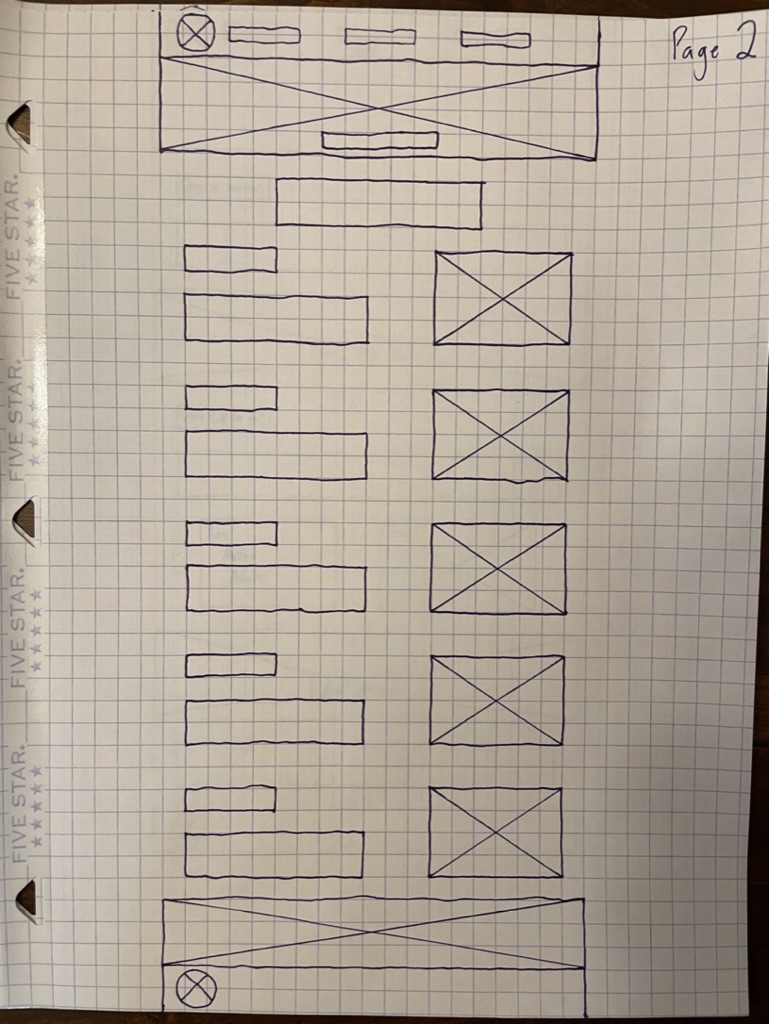 Page 2
FIVE STAR.
★★★★★
FIVE STAR.
★★★★★
FIVE STAR.
★★★★★
FIVE STAR.
★★★★★